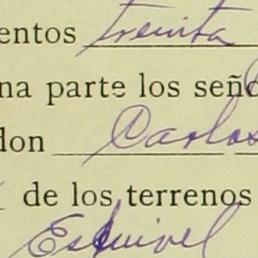 entos treinta
na parte los seño
don Carlos
de los terrenos
Esquivel